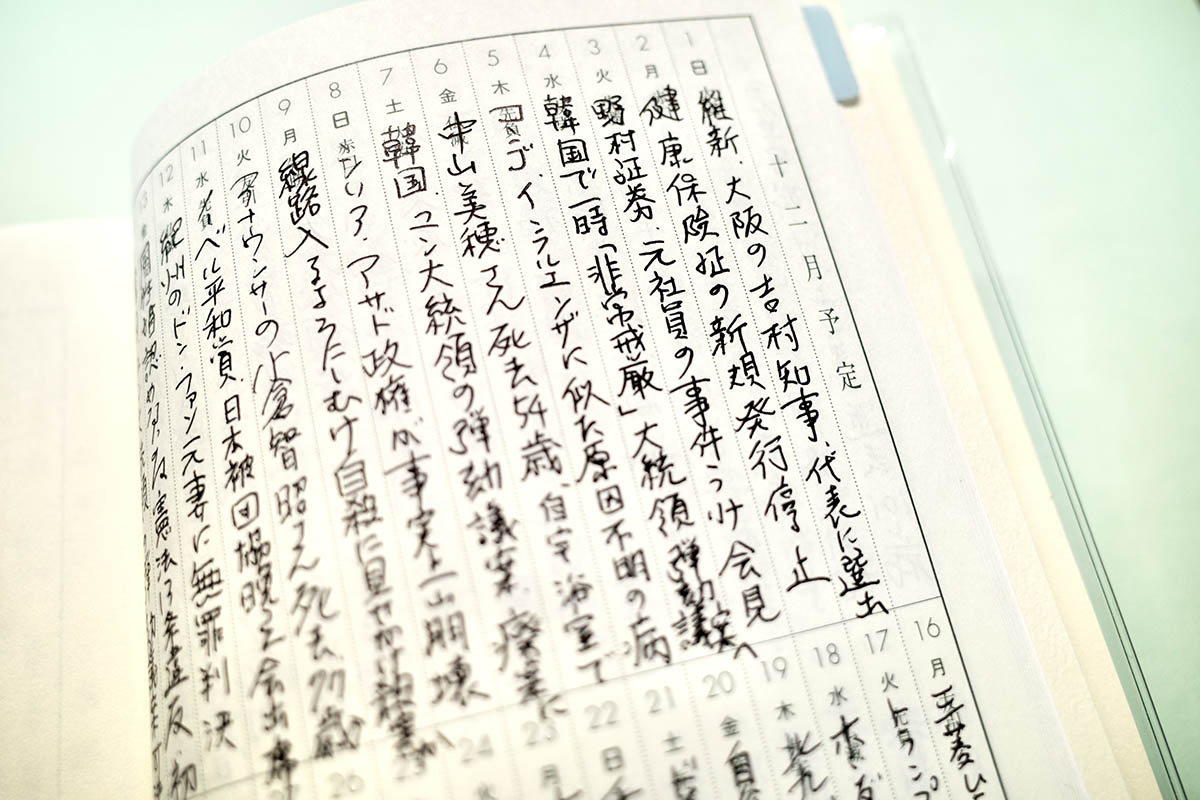 十二月予定
1 日 維新、大阪の吉村知事、代表に選出
2 月 健康保険証の新規発行停止
3 火 野村証券、元社員の事件うけ会見
4 水 韓国で一時「非常戒厳」大統領弾劾議案へ
5 木 コンゴ、インフルエンザに似た原因不明の病
6 金 中山美穂さん死去54歳、自宅浴室で
7 土 韓国、ユン大統領の弾劾議案、廃案に
8 日 シリア・アサド政権が事実上崩壊
9 月 線路入るようにしむけ自殺に見せかけ殺害か
10 火 アナウンサーの小倉智昭さん死去77歳
11 水 ノーベル平和賞、日本被団協晩さん会出席
12 木 紀州のドン・ファン元妻に無罪判決
13 金 憲法13条違反、初
16 月
17 火
18 水
19 木 北九
20 金
21 土
22 日
23 月
24
25
26